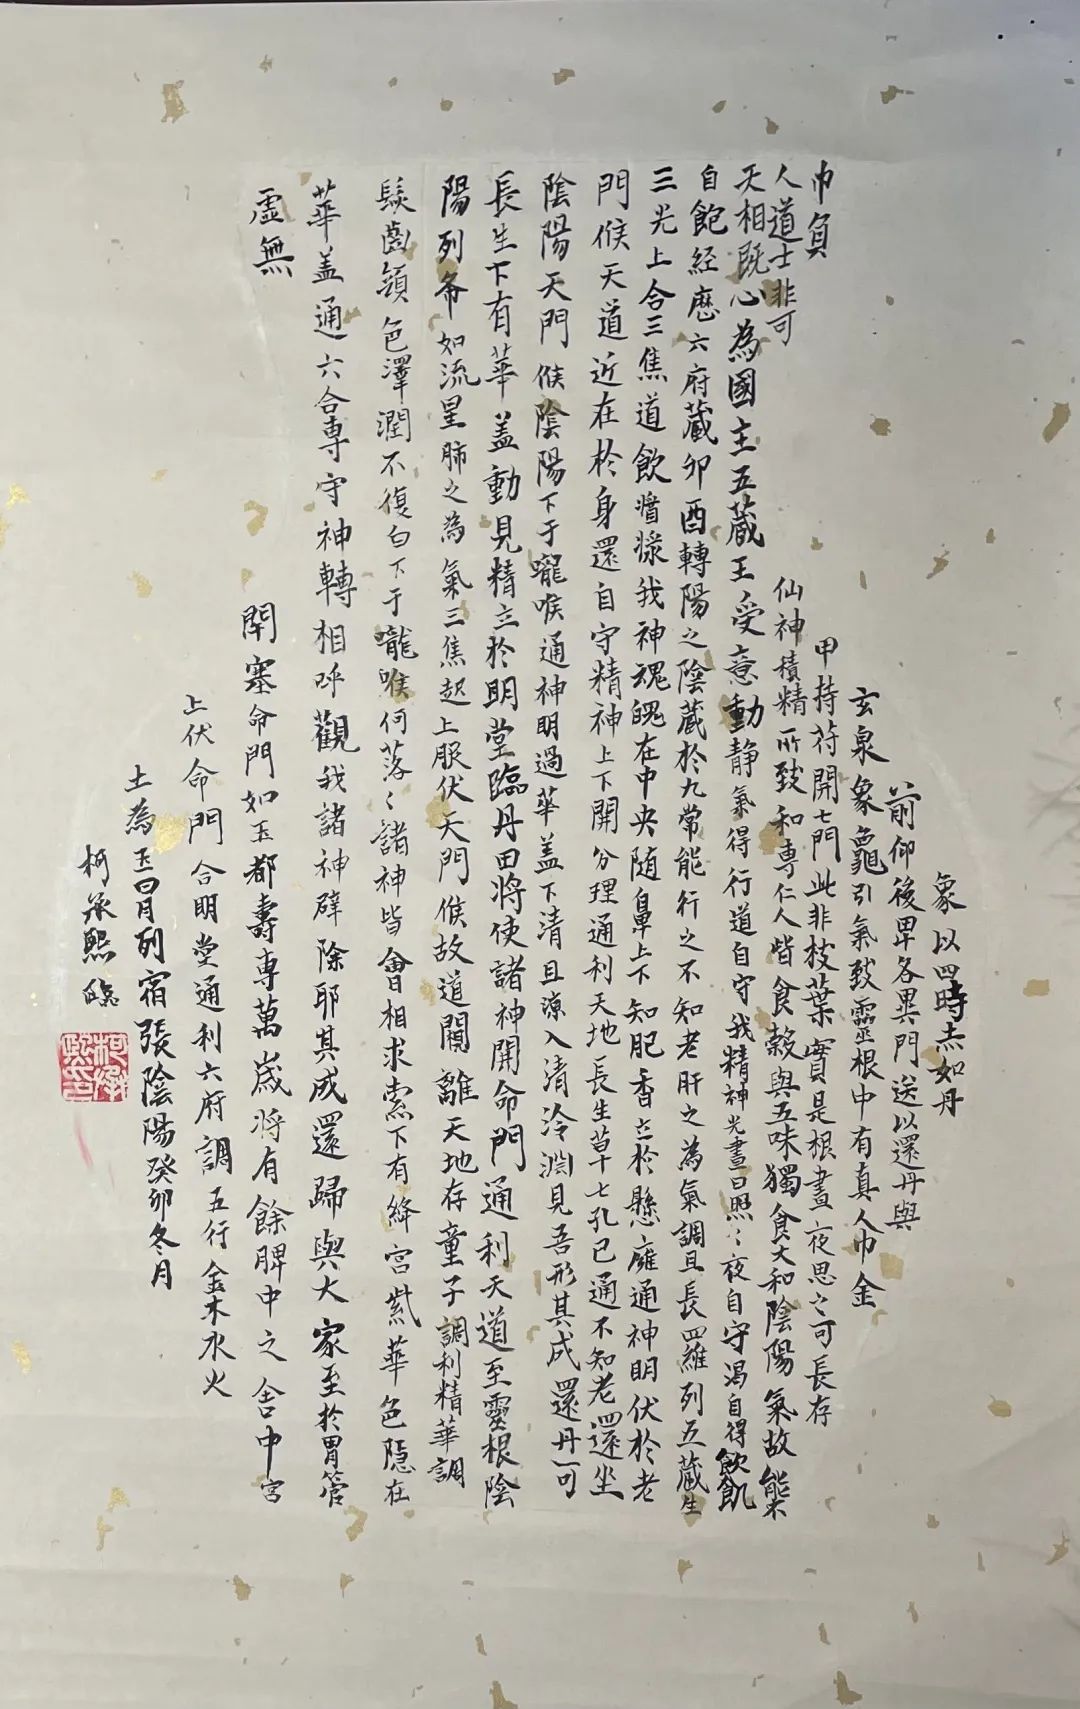 象以四時赤如丹
前仰後卑各異門送以還丹與
玄泉象龜引氣致靈根中有真人巾金
巾負
甲持符開七門此非枝葉實是根晝夜思之可長存
人道士非可
仙神積精所致和專仁人皆食穀與五味獨食大和陰陽氣故能不
天相既心為國主五藏王受意動静氣得行道自守我精神光晝日照〻夜自守渴自得飲飢
自飽經歷六府藏卯酉轉陽之陰藏於九常能行之不知老肝之為氣調且長羅列五藏生
三光上合三焦道飲醬漿我神魂魄在中央随鼻上下知肥香立於懸廱通神明伏於老
門候天道近在於身還自守精神上下開分理通利天地長生草七孔已通不知老還坐
陰陽天門候陰陽下于嚨喉通神明過華盖下清且涼入清泠淵見吾形其成還丹可
長生下有華盖動見精立於明堂臨丹田将使諸神開命門通利天道至靈根陰
陽列布如流星肺之為氣三焦起上服伏天門候故道闚離天地存童子調利精華調
髮齒顏色澤潤不復白下于嚨喉何落〻諸神皆會相求索下有絳宮紫華色隱在
華盖通六合專守神轉相呼觀我諸神辟除耶其成還歸與大家至於胃管
虛無
閉塞命門如玉都壽專萬歲将有餘脾中之舍中宮
上伏命門合明堂通利六府調五行金木水火
土為王日月列宿張陰陽癸卯冬月
柯承熙臨